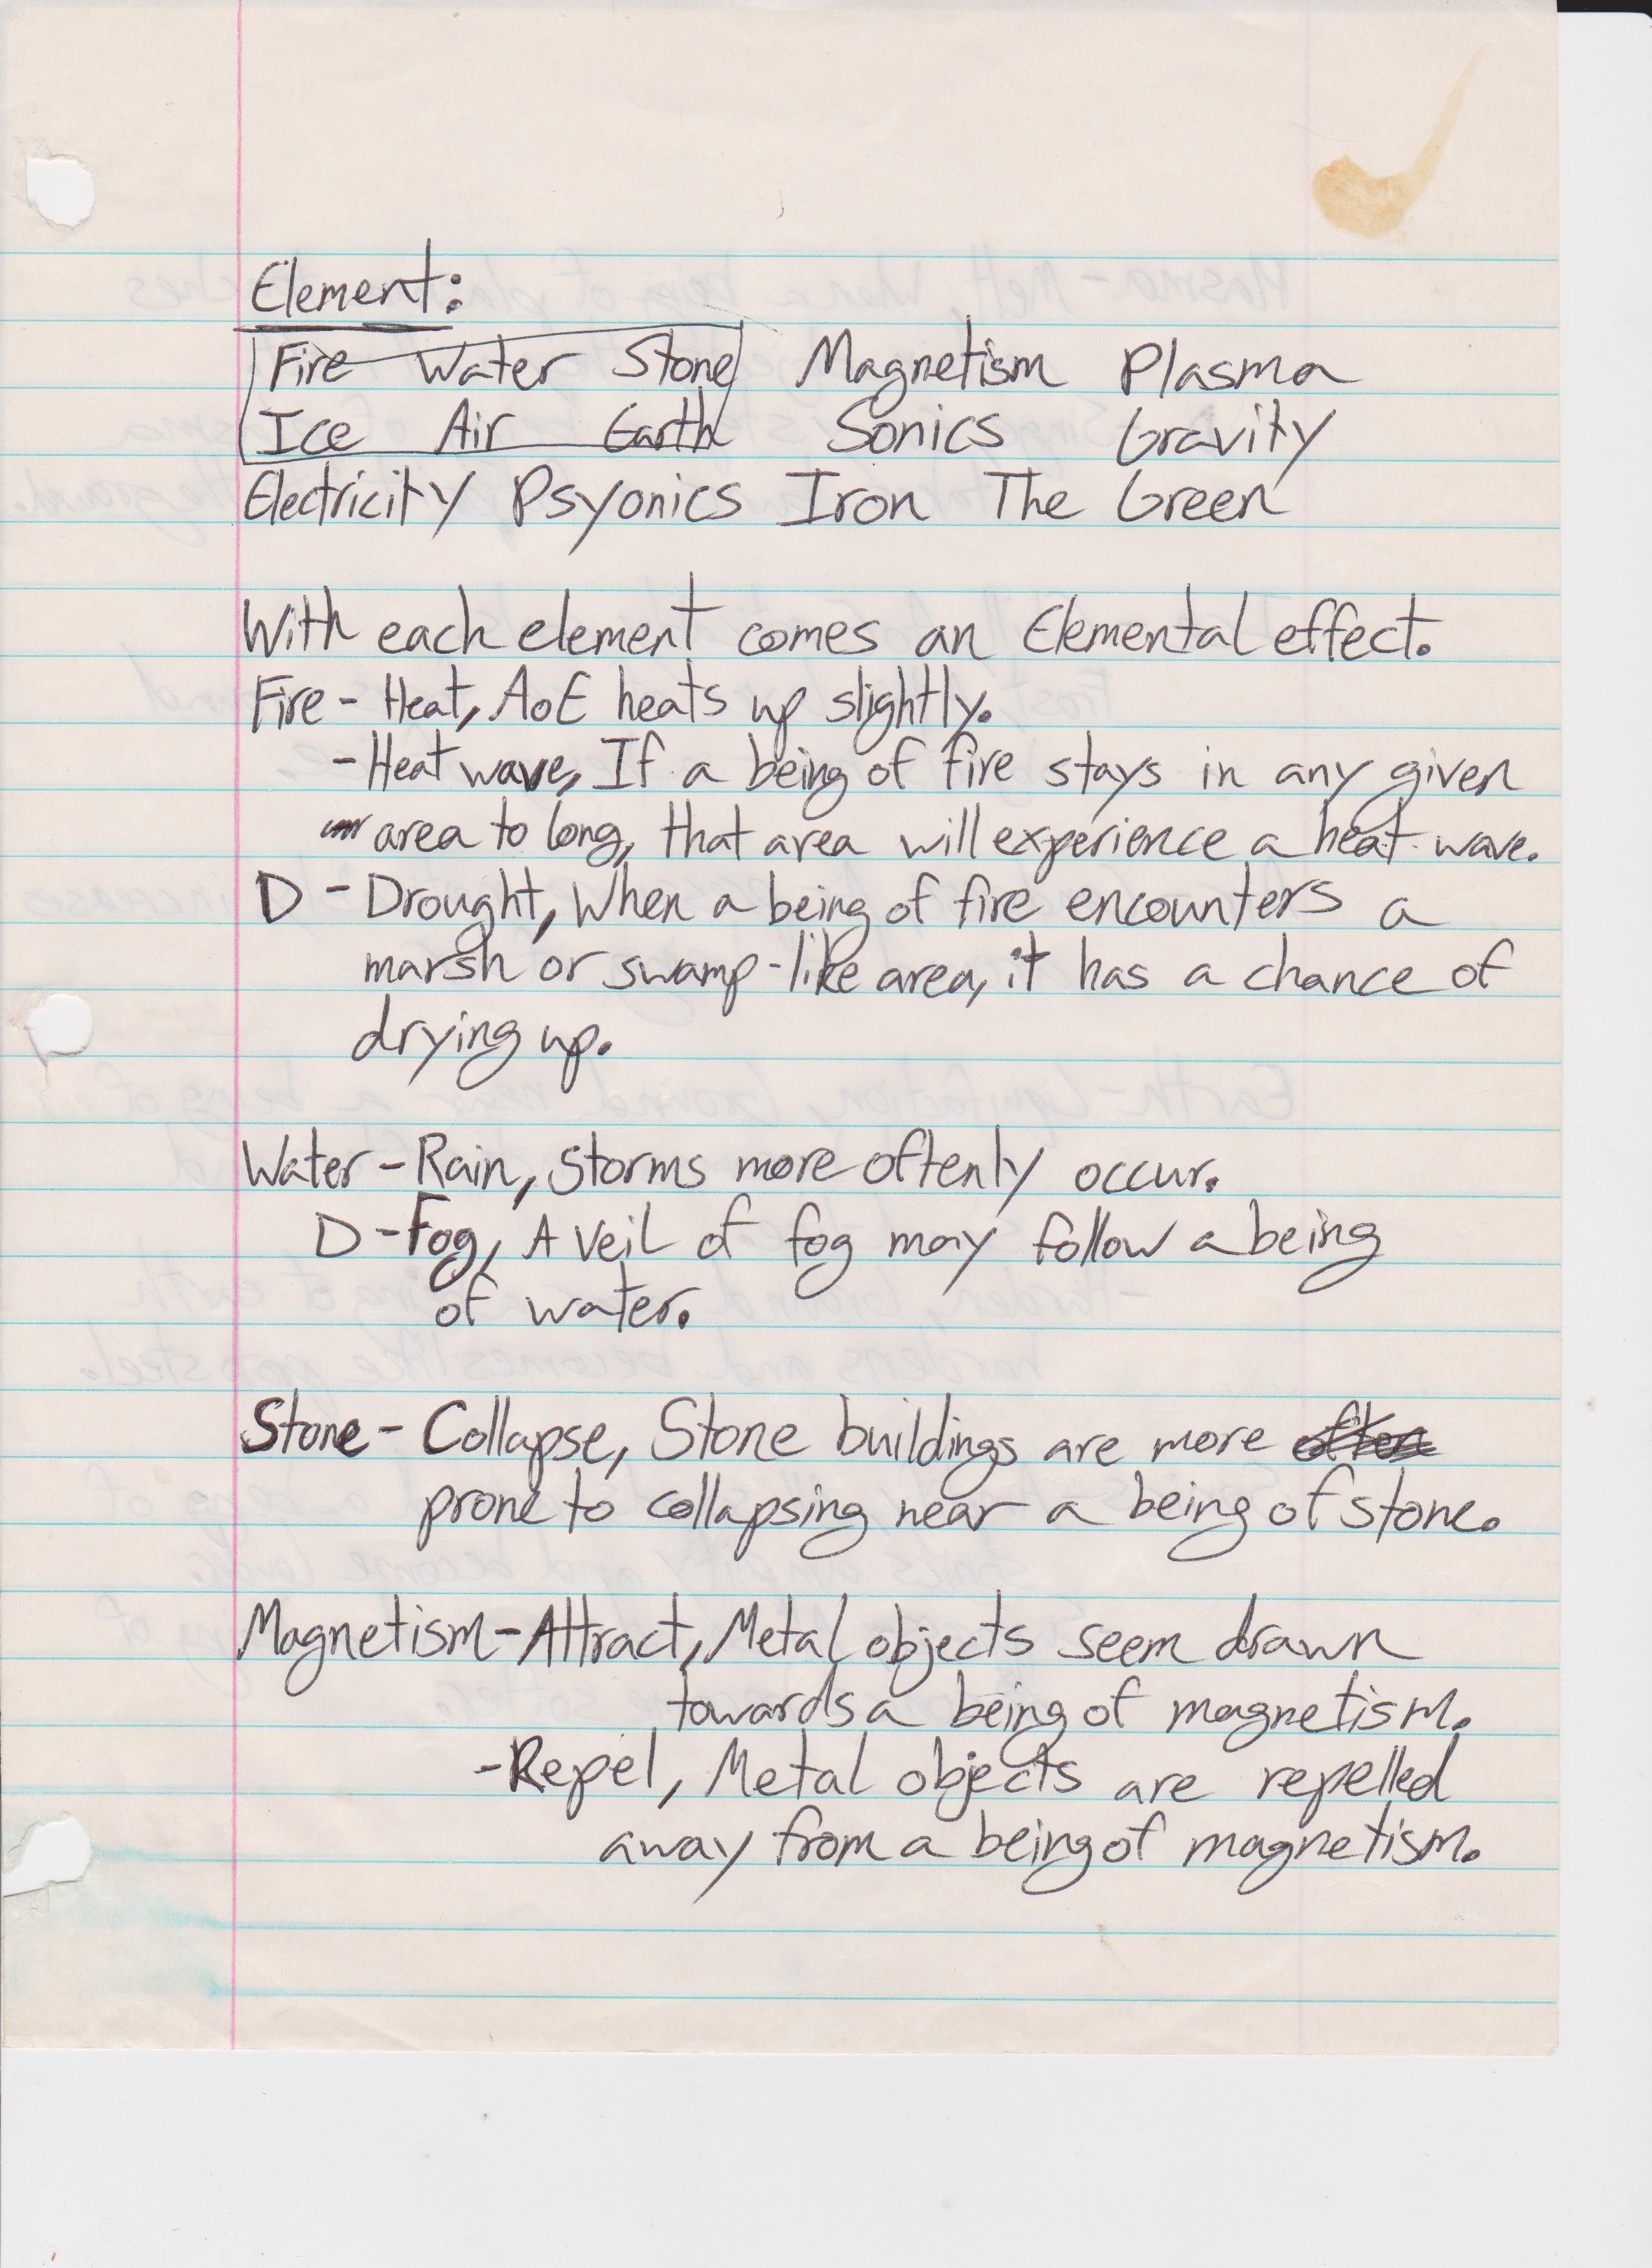 Element:
Fire Water Stone Magnetism Plasma
Ice Air Earth Sonics Gravity
Electricity Psyonics Iron The Green
With each element comes an Elemental effect.
Fire - Heat, AoE heats up slightly.
- Heat wave, If a being of fire stays in any given
area to long, that area will experience a heat wave.
D - Drought, When a being of fire encounters a
marsh or swamp-like area, it has a chance of
drying up.
Water - Rain, Storms more oftenly occur.
D - Fog, A veil of fog may follow a being
of water.
Stone - Collapse, Stone buildings are more often
prone to collapsing near a being of stone.
Magnetism - Attract, Metal objects seem drawn
towards a being of magnetism.
- Repel, Metal objects are repelled
away from a being of magnetism.